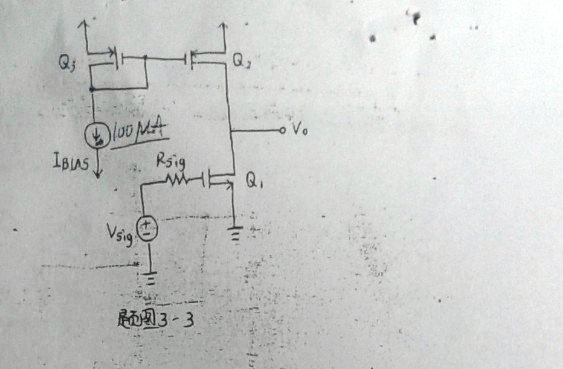 Q3
Q2
100μA
Vo
IBIAS
Rsig
Q1
Vsig
题图3-3